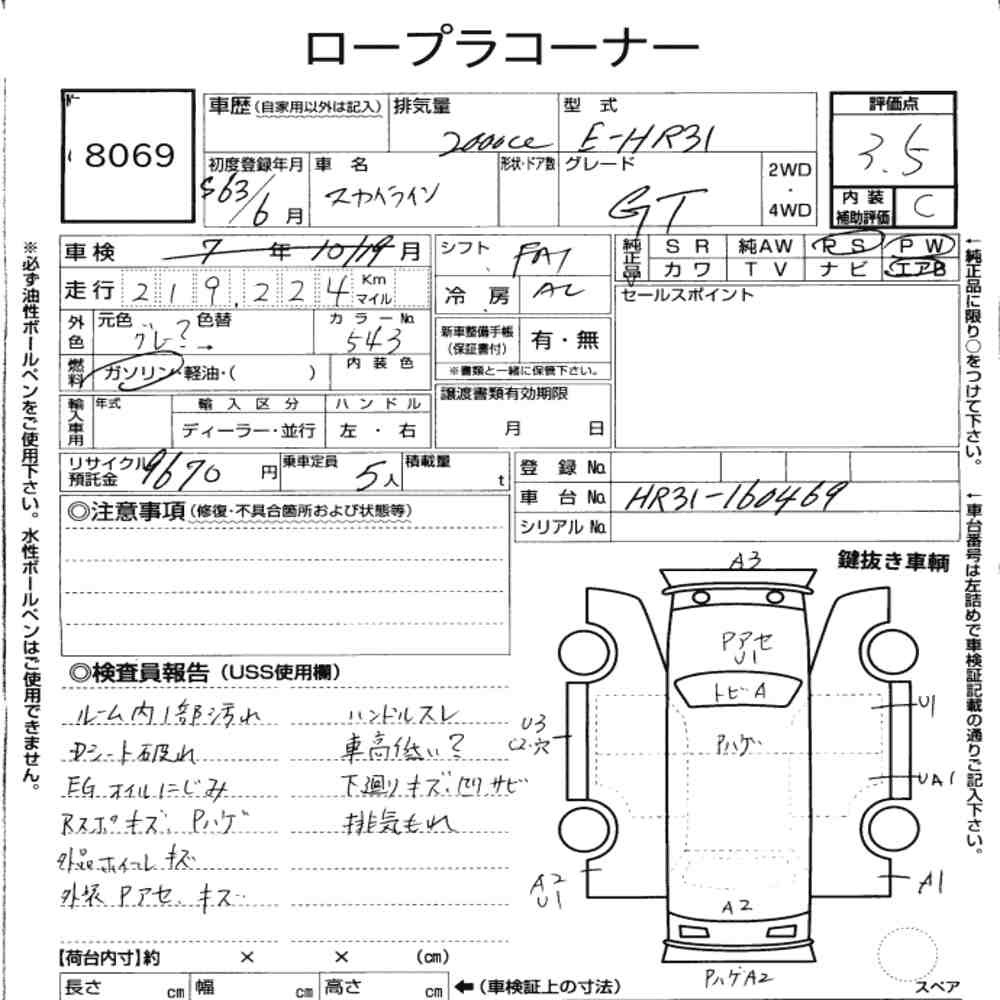 ロープラコーナー
8069
車歴(自家用以外は記入)
排気量
2000cc
型 式
E-HR31
評価点
3.5
初度登録年月
S63/6月
車 名
スカイライン
形状・ドア数
グレード
GT
2WD
・
4WD
内 装
補助評価
C
車検 7 年 10/19 月
走行 219,224 Km
マイル
外色
元色 グレー?
色替 →
カラーNo.
543
燃料
ガソリン・軽油・( )
内 装 色
輸入車用
年式
輸 入 区 分
ディーラー・並行
ハ ン ド ル
左 ・ 右
シフト FAT
冷 房 AC
新車整備手帳
(保証書付)
有・無
※書類と一緒に保管下さい。
譲渡書類有効期限
月 日
純正品
S R
純AW
R S
P W
カ ワ
T V
ナ ビ
エアB
セールスポイント
リサイクル
預託金
9670 円
乗車定員
5人
積載量
t
登 録 No.
車 台 No.
HR31-160469
シリアル No.
◎注意事項(修復・不具合箇所および状態等)
◎検査員報告(USS使用欄)
ルーム内1部汚れ
Dシート破れ
EGオイルにじみ
Rスポキズ、Pハゲ
外品ホイールキズ
外装Pアセ、キズ
ハンドルスレ
車高低い?
下廻りキズ、凹サビ
排気もれ
鍵抜き車輌
A3
Pアセ
U1
トビA
Pハゲ
U3
C2・穴
U1
UA1
A2
U1
A1
A2
PハゲA2
スペア
【荷台内寸】約 × × (cm)
長さ cm
幅 cm
高さ cm
←(車検証上の寸法)
※必ず油性ボールペンをご使用下さい。水性ボールペンはご使用できません。
←純正品に限り○をつけて下さい。
←車台番号は左詰めで車検証記載の通りご記入下さい。